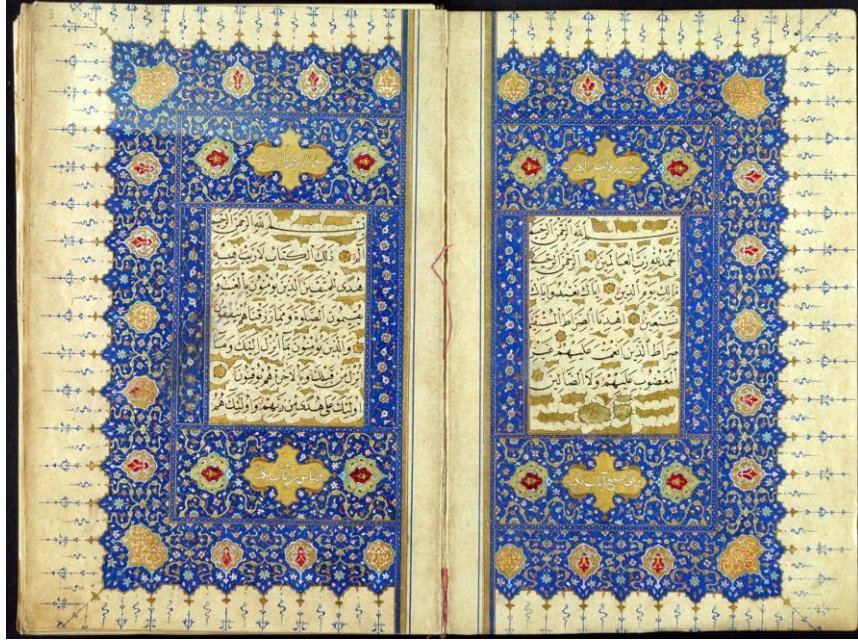 سورة فاتحة الكتاب
بسم الله الرحمن الرحيم
الحمد لله رب العالمين الرحمن الرحيم
مالك يوم الدين اياك نعبد واياك
نستعين اهدنا الصراط المستقيم
صراط الذين انعمت عليهم غير
المغضوب عليهم ولا الضالين
وهي سبع آيات
بسم الله الرحمن الرحيم
الم ذلك الكتاب لا ريب فيه
هدى للمتقين الذين يؤمنون بالغيب و
يقيمون الصلوة ومما رزقناهم ينفقون
والذين يؤمنون بما انزل اليك وما
انزل من قبلك وبالاخرة هم يوقنون
اولئك على هدى من ربهم واولئك هم